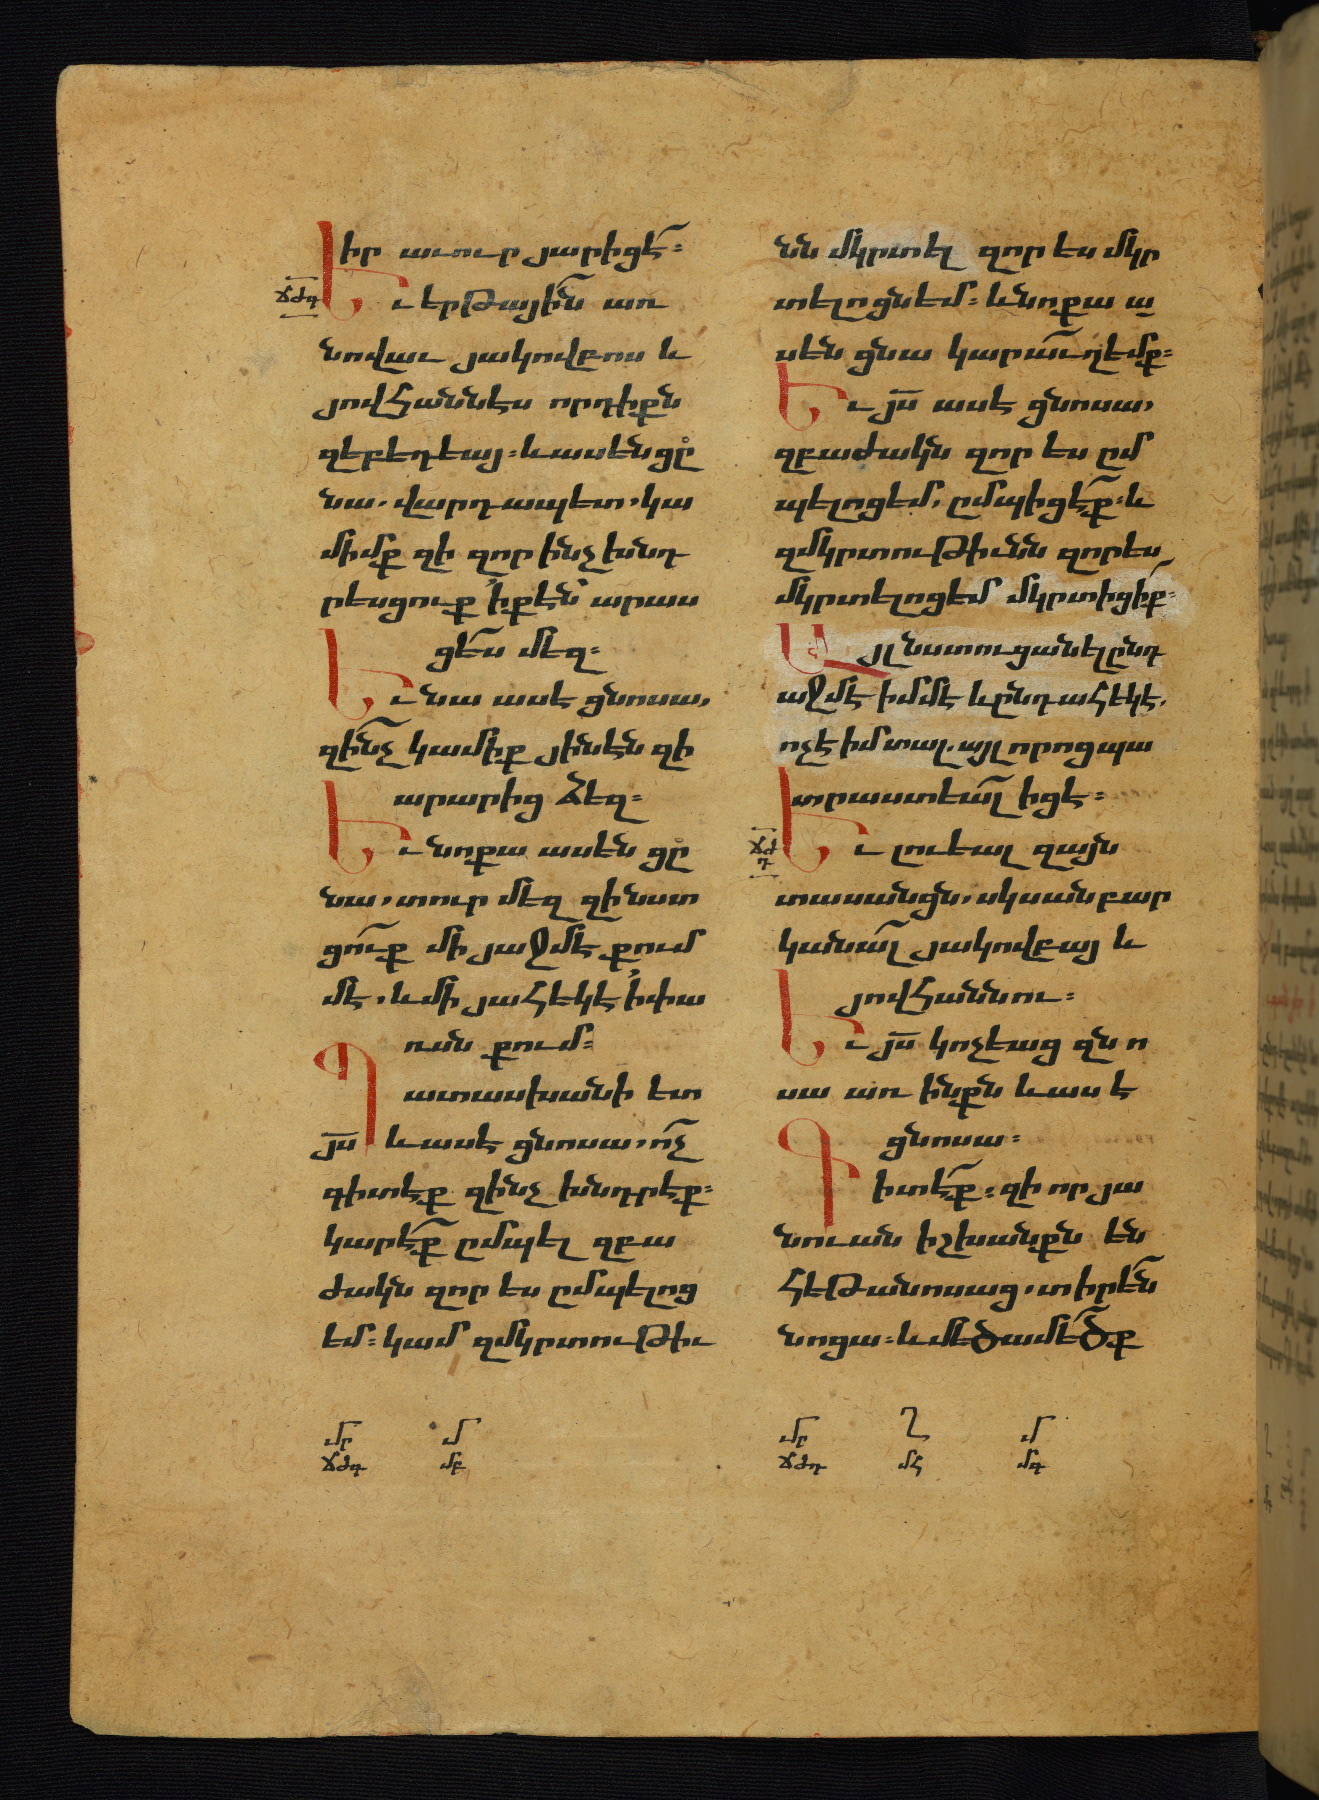 իր աւուր յարիցէ։
ճժգ
Եւ երթային առ
նովաւ յակովբոս և
յովհաննէս որդիքն
զեբեդեայ։ և ասեն ցը
նա. վարդապետ, կա
միմք զի զոր ինչ խնդ
րեսցուք ՛ի քէն արաս
ցես մեզ։
Եւ նա ասէ ցնոսա,
զի՞նչ կամիք յինէն զի
արարից ձեզ։
Եւ նոքա ասեն ցը
նա, տուր մեզ զի նստ
ցուք մի յաջմէ քում
մէ, և մի յահեկէ ՛ի փա
ռսն քում։
Պատասխանի ետ
յս և ասէ ցնոսա, ոչ
գիտէք զինչ խնդրէք։
կարէք ըմպել զբա
ժակն զոր ես ըմպելոց
եմ։ կամ զմկրտութիւ
մր մ
ճժգ մբ
նն մկրտել զոր ես մկր
տելոցն եմ։ և նոքա ա
սեն ցնա կարաւղ եմք։
Եւ յս ասէ ցնոսա,
զբաժակն զոր ես ըմ
պելոց եմ, ըմպիցէք։ և
զմկրտութիւնն զոր ես
մկրտելոց եմ մկրտիցիք։
Այլ նստուցանել ընդ
աջմէ իմմէ և ընդ ահեկէ.
ոչ է իմ տալ. այլ որոց պա
տրաստեալ իցէ։
ճժդ
Եւ լուեալ զայն
տասանցն, սկսան բար
կանալ յակովբայ և
յովհաննու։
Եւ յս կոչեաց զնո
սա առ ինքն և ասէ
ցնոսա։
Գիտէք. զի որ յա
նուան իշխանքն են
հեթանոսաց, տիրեն
նոցա։ և մեծամեծք
մր Ղ մ
ճժդ մհ մգ